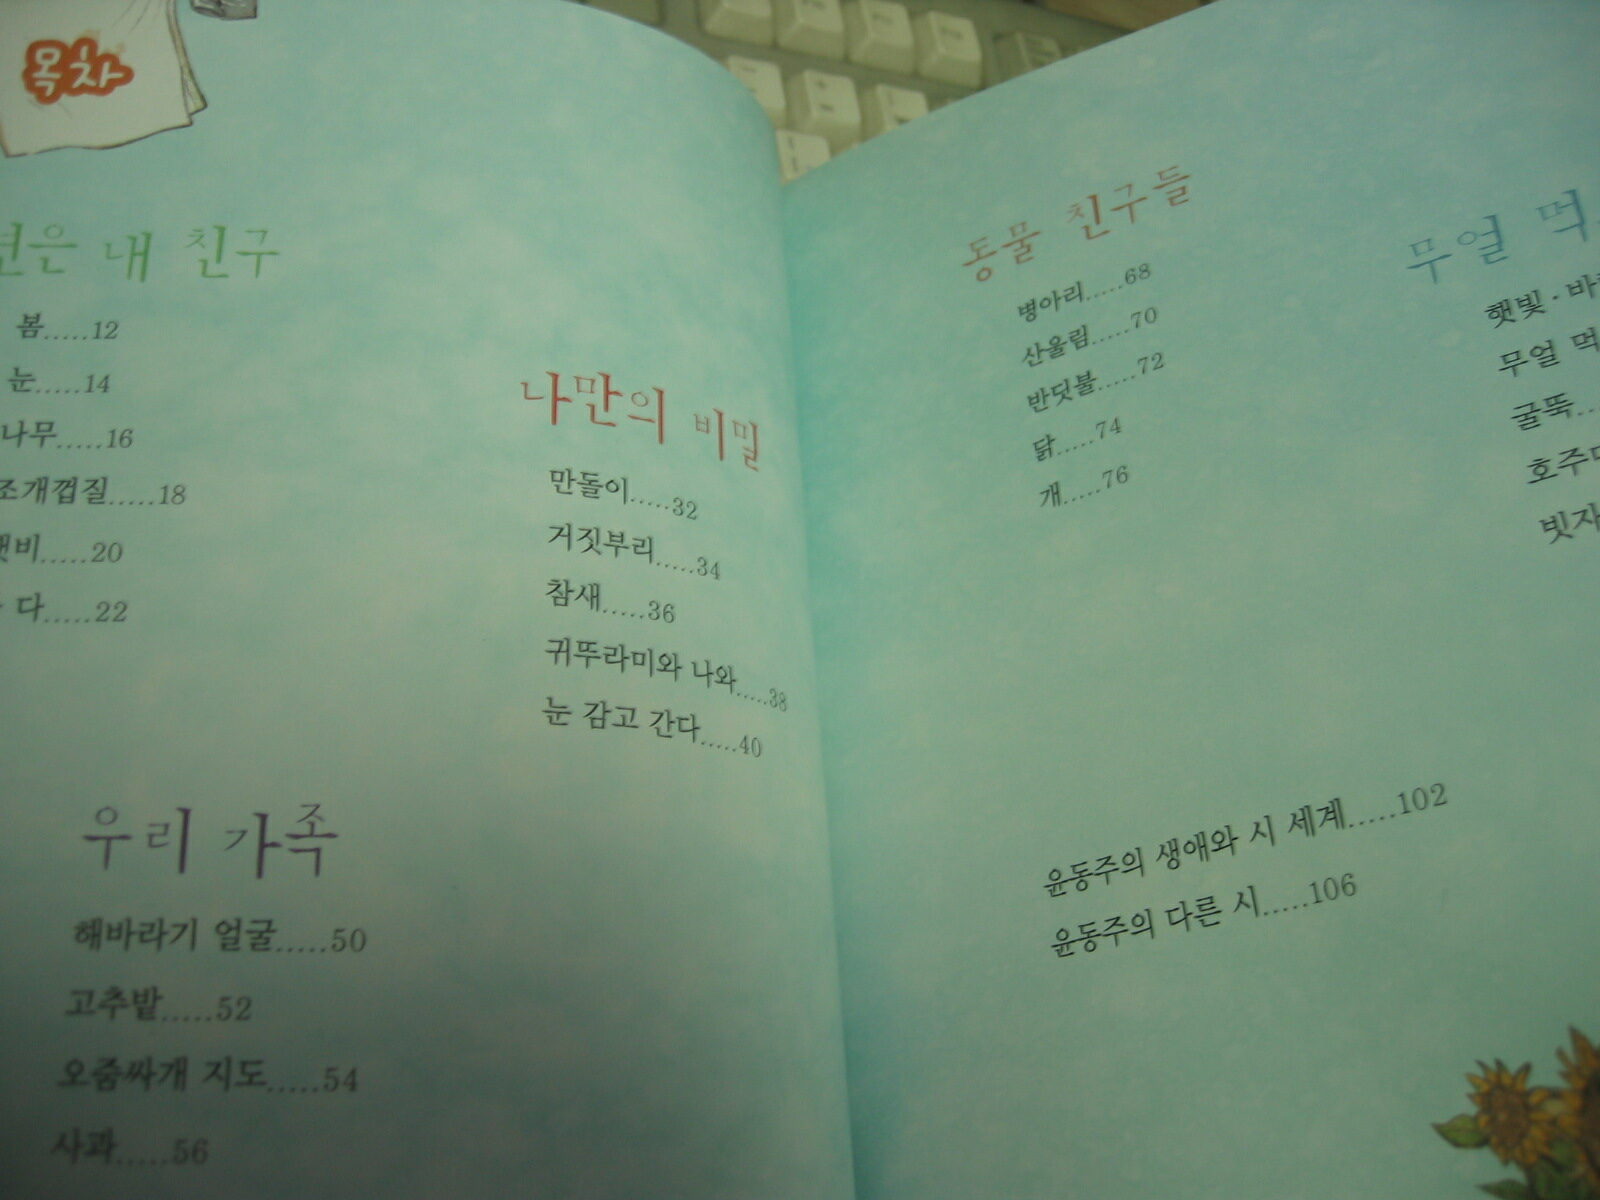 목차
내 친구
봄.....12
눈.....14
나무.....16
조개껍질.....18
햇비.....20
다.....22
나만의 비밀
만돌이.....32
거짓부리.....34
참새.....36
귀뚜라미와 나와.....38
눈 감고 간다.....40
우리 가족
해바라기 얼굴.....50
고추밭.....52
오줌싸개 지도.....54
사과.....56
동물 친구들
병아리.....68
산울림.....70
반딧불.....72
닭.....74
개.....76
무얼 먹
햇빛·바
무얼 먹
굴뚝...
호주
빗자
윤동주의 생애와 시 세계.....102
윤동주의 다른 시.....106